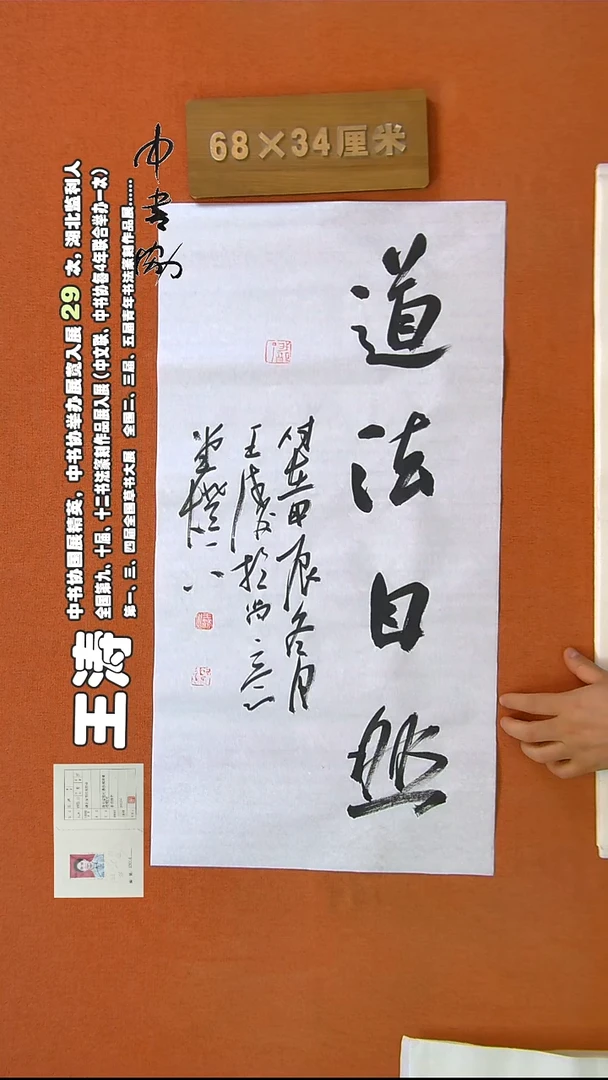 68×34厘米
道法自然
时在甲辰冬月
王涛于尚意
堂灯下
中书协
王涛
中书协国展精英，中书协举办展览入展 29 次，湖北监利人
全国第九、十届、十二书法篆刻作品展入展（中文联、中书协每4年联合举办一次）
第一、三、四届全国草书大展 全国二、三届、五届青年书法篆刻作品展......